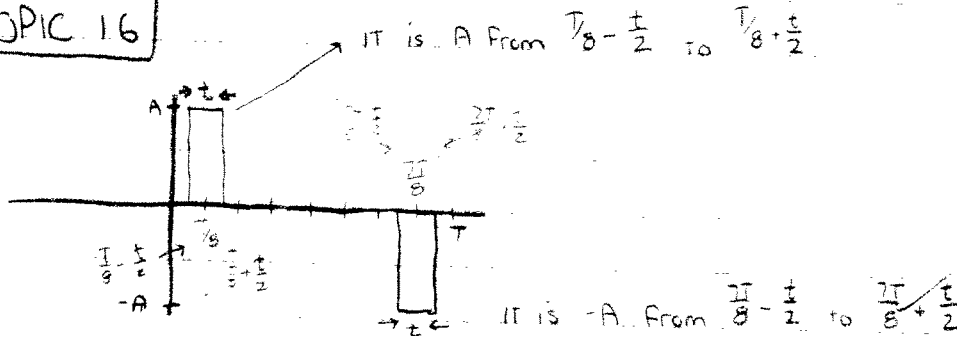 OPIC 1.6
IT is A From T/8 - t/2 to T/8 + t/2
t
A
7T/8 + t/2
7T/8
T/8
T
T/8 - t/2
T/8 + t/2
-A
t
IT is -A From 7T/8 - t/2 to 7T/8 + t/2